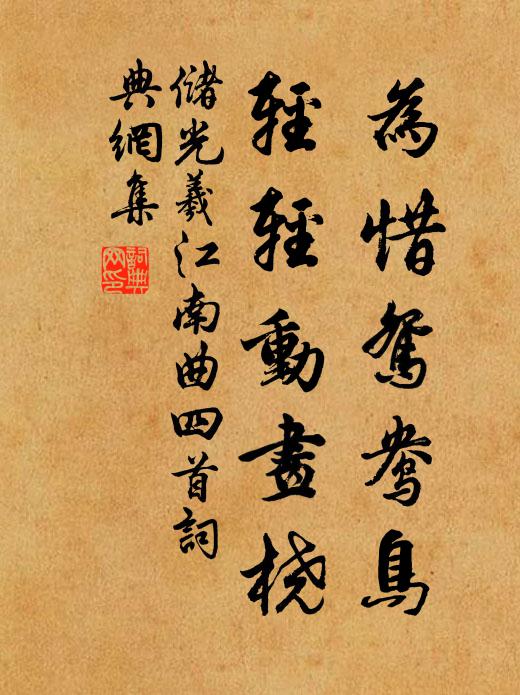 為惜鴛鴦鳥
輕輕動畫橈
儲光羲江南曲四首詞
典網集
詞典網印